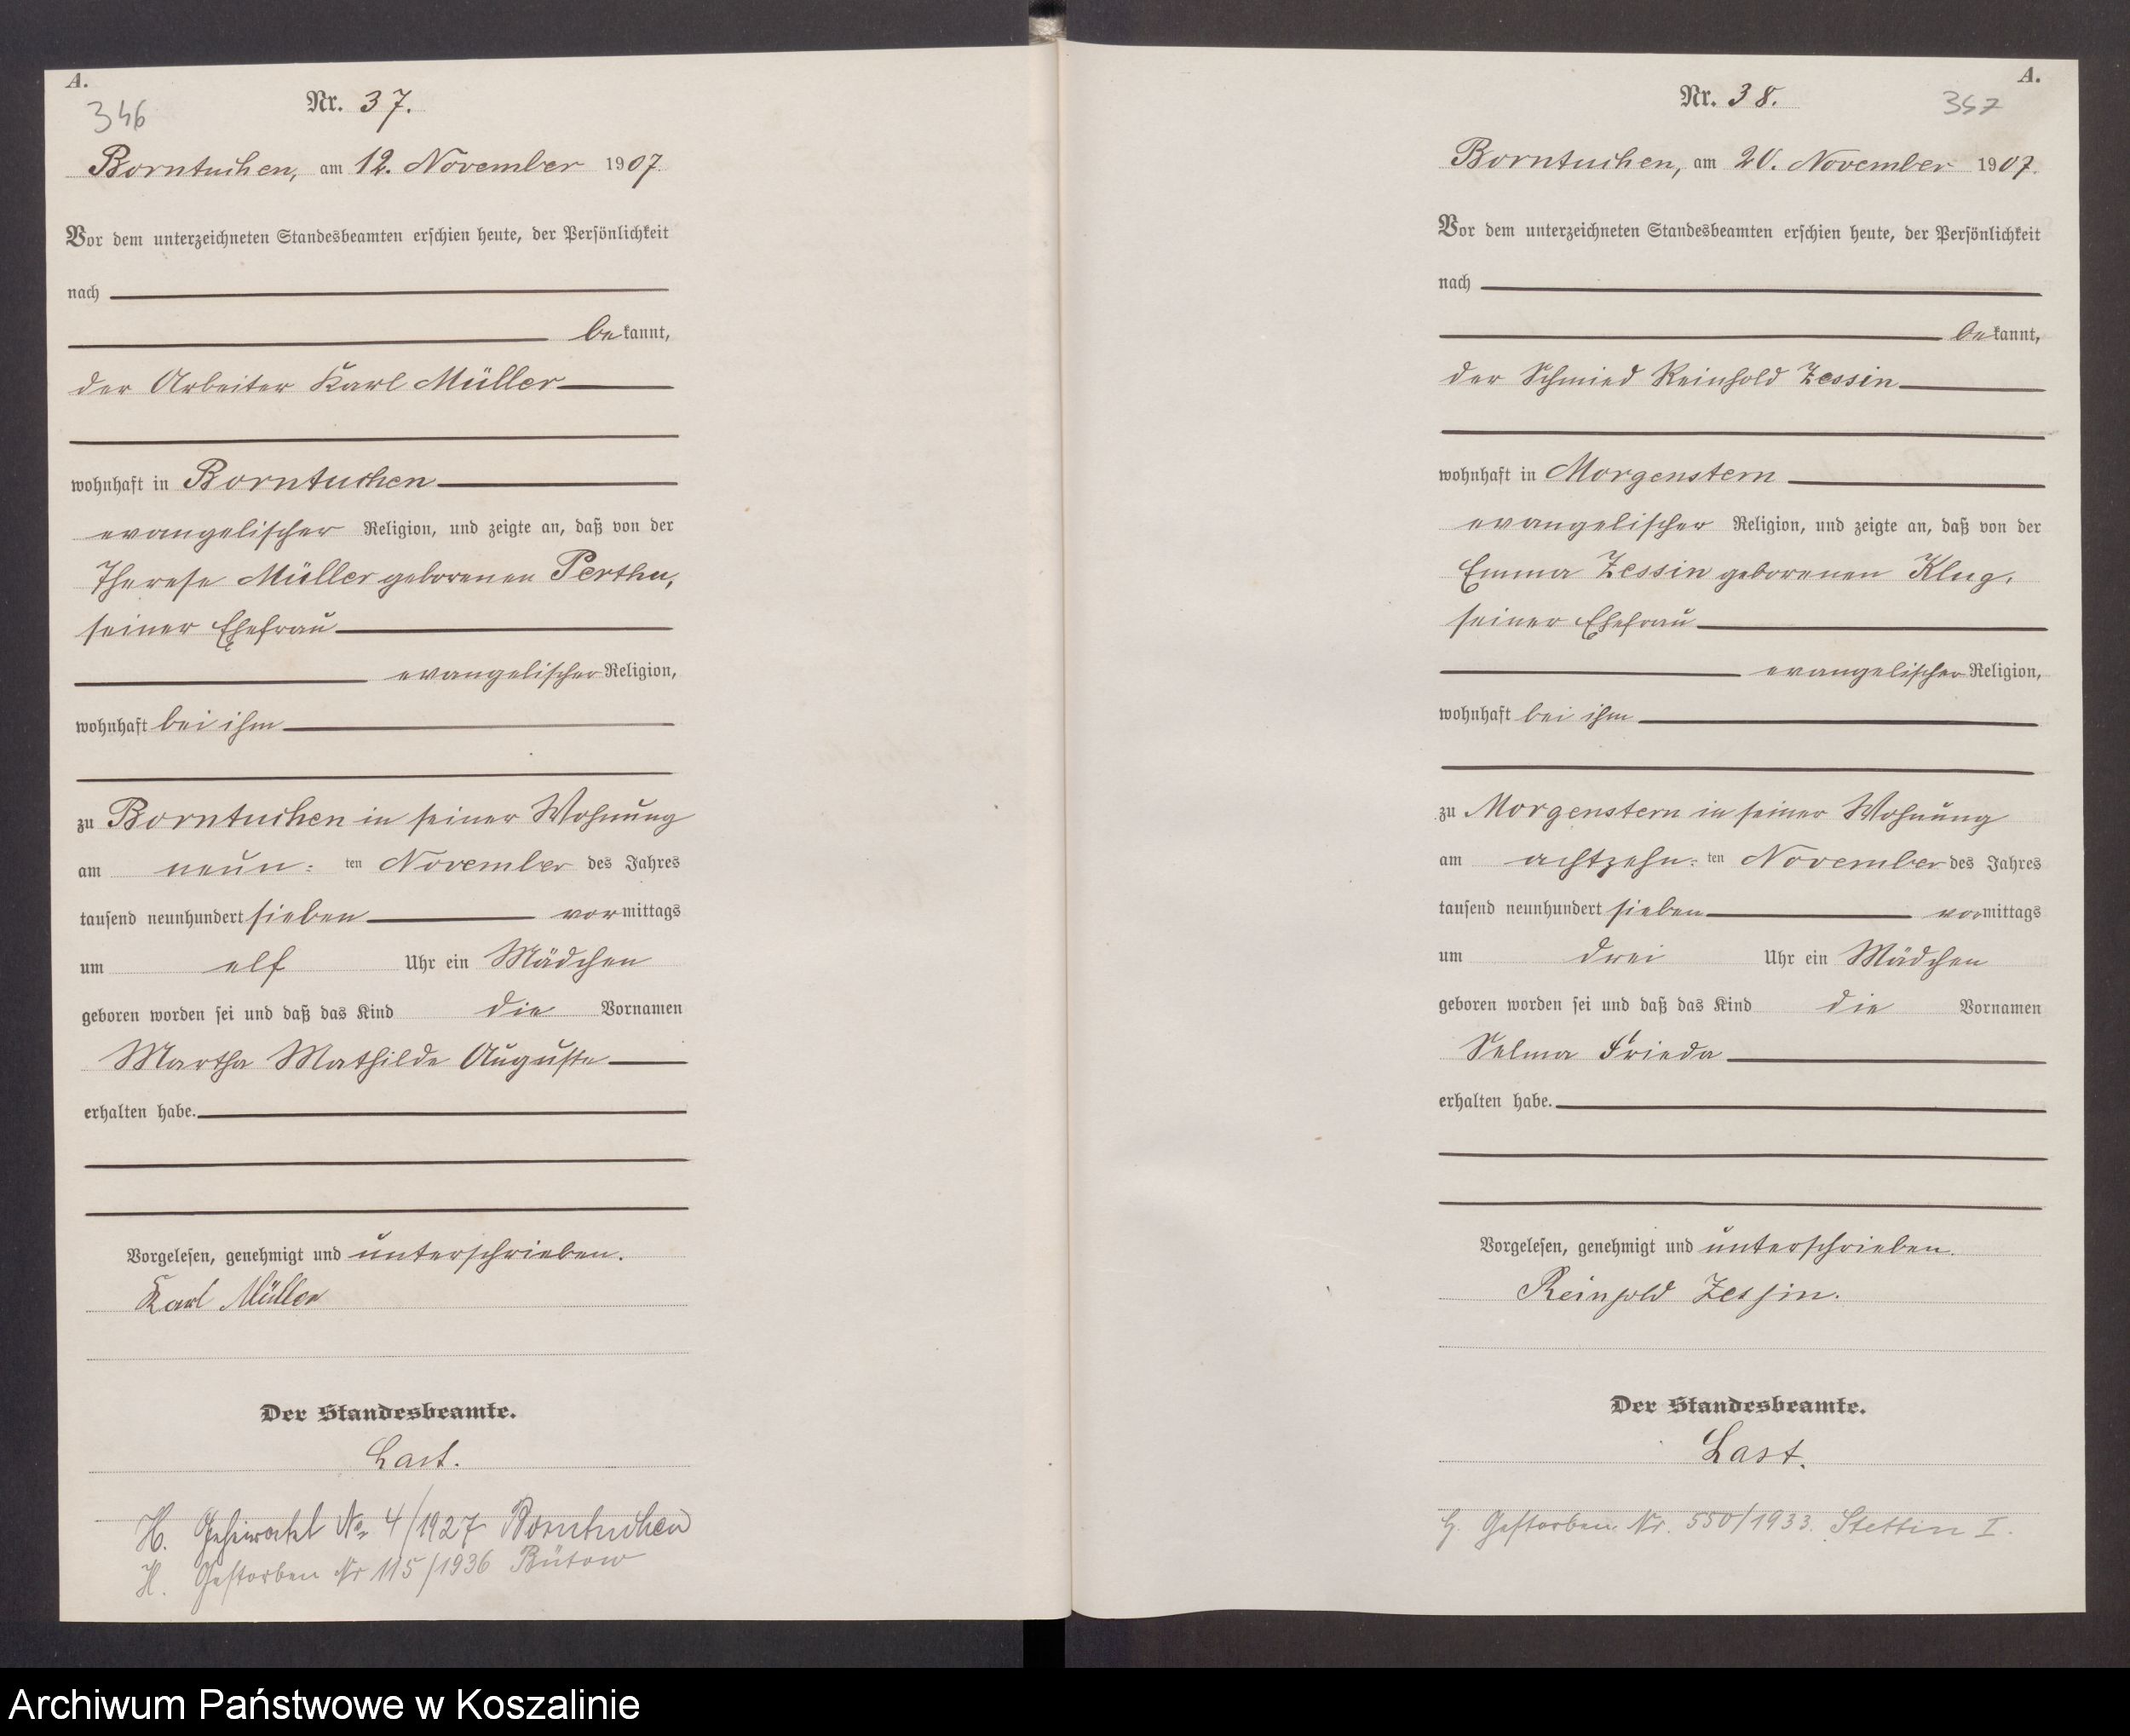 A.
346
Nr. 37.
Borntuchen, am 12. November 1907.
Vor dem unterzeichneten Standesbeamten erschien heute, der Persönlichkeit
nach
bekannt,
der Arbeiter Karl Müller
wohnhaft in Borntuchen
evangelischer Religion, und zeigte an, daß von der
Therese Müller geborenen Perthu,
seiner Ehefrau
evangelischer Religion,
wohnhaft bei ihm
zu Borntuchen in seiner Wohnung
am neun=ten November des Jahres
tausend neunhundert sieben vormittags
um elf Uhr ein Mädchen
geboren worden sei und daß das Kind die Vornamen
Martha Mathilde Auguste
erhalten habe.
Vorgelesen, genehmigt und unterschrieben.
Karl Müller
Der Standesbeamte.
Last.
H. Geheiratet No 4/1927 Borntuchen
H. Gestorben Nr 115/1936 Bütow
A.
347
Nr. 38.
Borntuchen, am 20. November 1907.
Vor dem unterzeichneten Standesbeamten erschien heute, der Persönlichkeit
nach
bekannt,
der Schmied Reinhold Zessin
wohnhaft in Morgenstern
evangelischer Religion, und zeigte an, daß von der
Emma Zessin geborenen Klug,
seiner Ehefrau
evangelischer Religion,
wohnhaft bei ihm
zu Morgenstern in seiner Wohnung
am achtzehn=ten November des Jahres
tausend neunhundert sieben vormittags
um drei Uhr ein Mädchen
geboren worden sei und daß das Kind die Vornamen
Selma Frieda
erhalten habe.
Vorgelesen, genehmigt und unterschrieben.
Reinhold Zessin.
Der Standesbeamte.
Last.
H. Gestorben Nr. 550/1933. Stettin I.
Archiwum Państwowe w Koszalinie